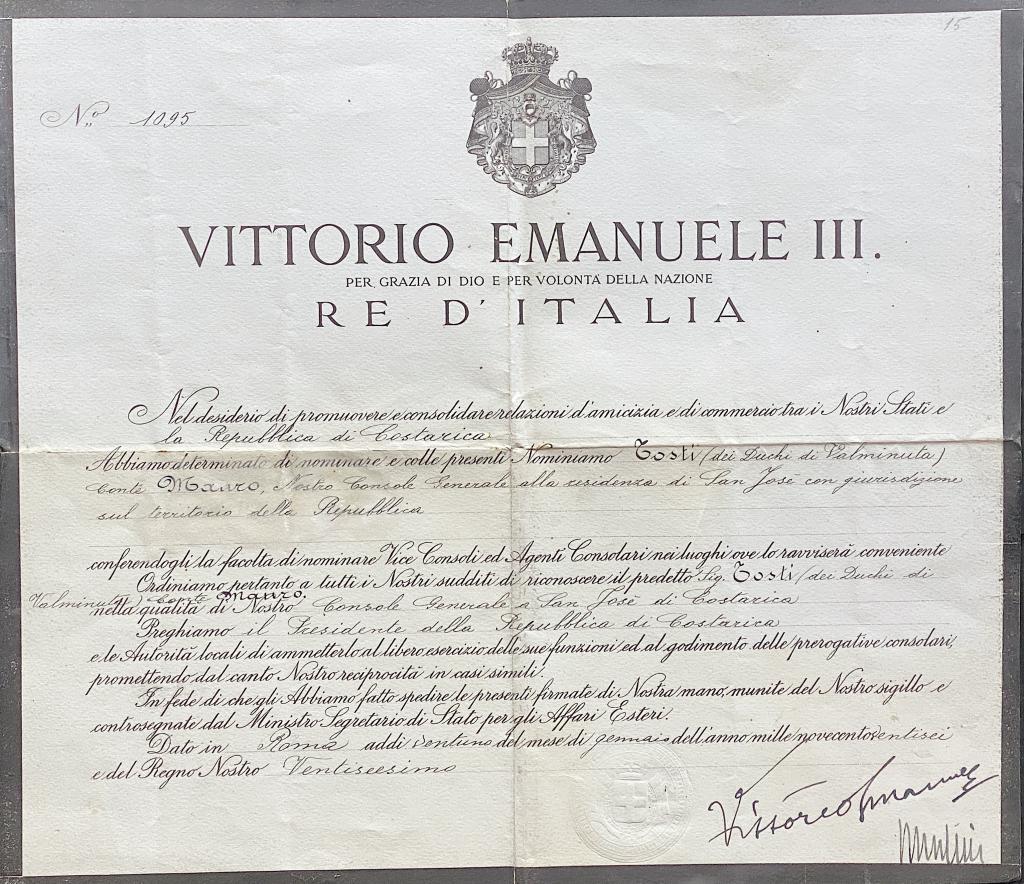 15
Nº 1095
VITTORIO EMANUELE III.
PER GRAZIA DI DIO E PER VOLONTÀ DELLA NAZIONE
RE D'ITALIA
Nel desiderio di promuovere e consolidare relazioni d'amicizia e di commercio tra i Nostri Stati e
la Repubblica di Costarica
Abbiamo determinato di nominare e colle presenti Nominiamo Tosti (dei Duchi di Valminuta)
Conte Mauro, Nostro Console Generale alla residenza di San Josè con giurisdizione
sul territorio della Repubblica
conferendogli la facoltà di nominare Vice Consoli ed Agenti Consolari nei luoghi ove lo ravviserà conveniente
Ordiniamo pertanto a tutti i Nostri sudditi di riconoscere il predetto Sig. Tosti (dei Duchi di
Valminuta) Conte Mauro,
nella qualità di Nostro Console Generale a San Josè di Costarica
Preghiamo il Presidente della Repubblica di Costarica
e le Autorità locali di ammetterlo al libero esercizio delle sue funzioni ed al godimento delle prerogative consolari,
promettendo dal canto Nostro reciprocità in casi simili.
In fede di che gli Abbiamo fatto spedire le presenti firmate di Nostra mano, munite del Nostro sigillo e
controsegnate dal Ministro Segretario di Stato per gli Affari Esteri.
Dato in Roma addì ventuno del mese di gennaio dell'anno mille novecento ventisei
e del Regno Nostro Ventiseesimo
Vittorio Emanuele
Mussolini